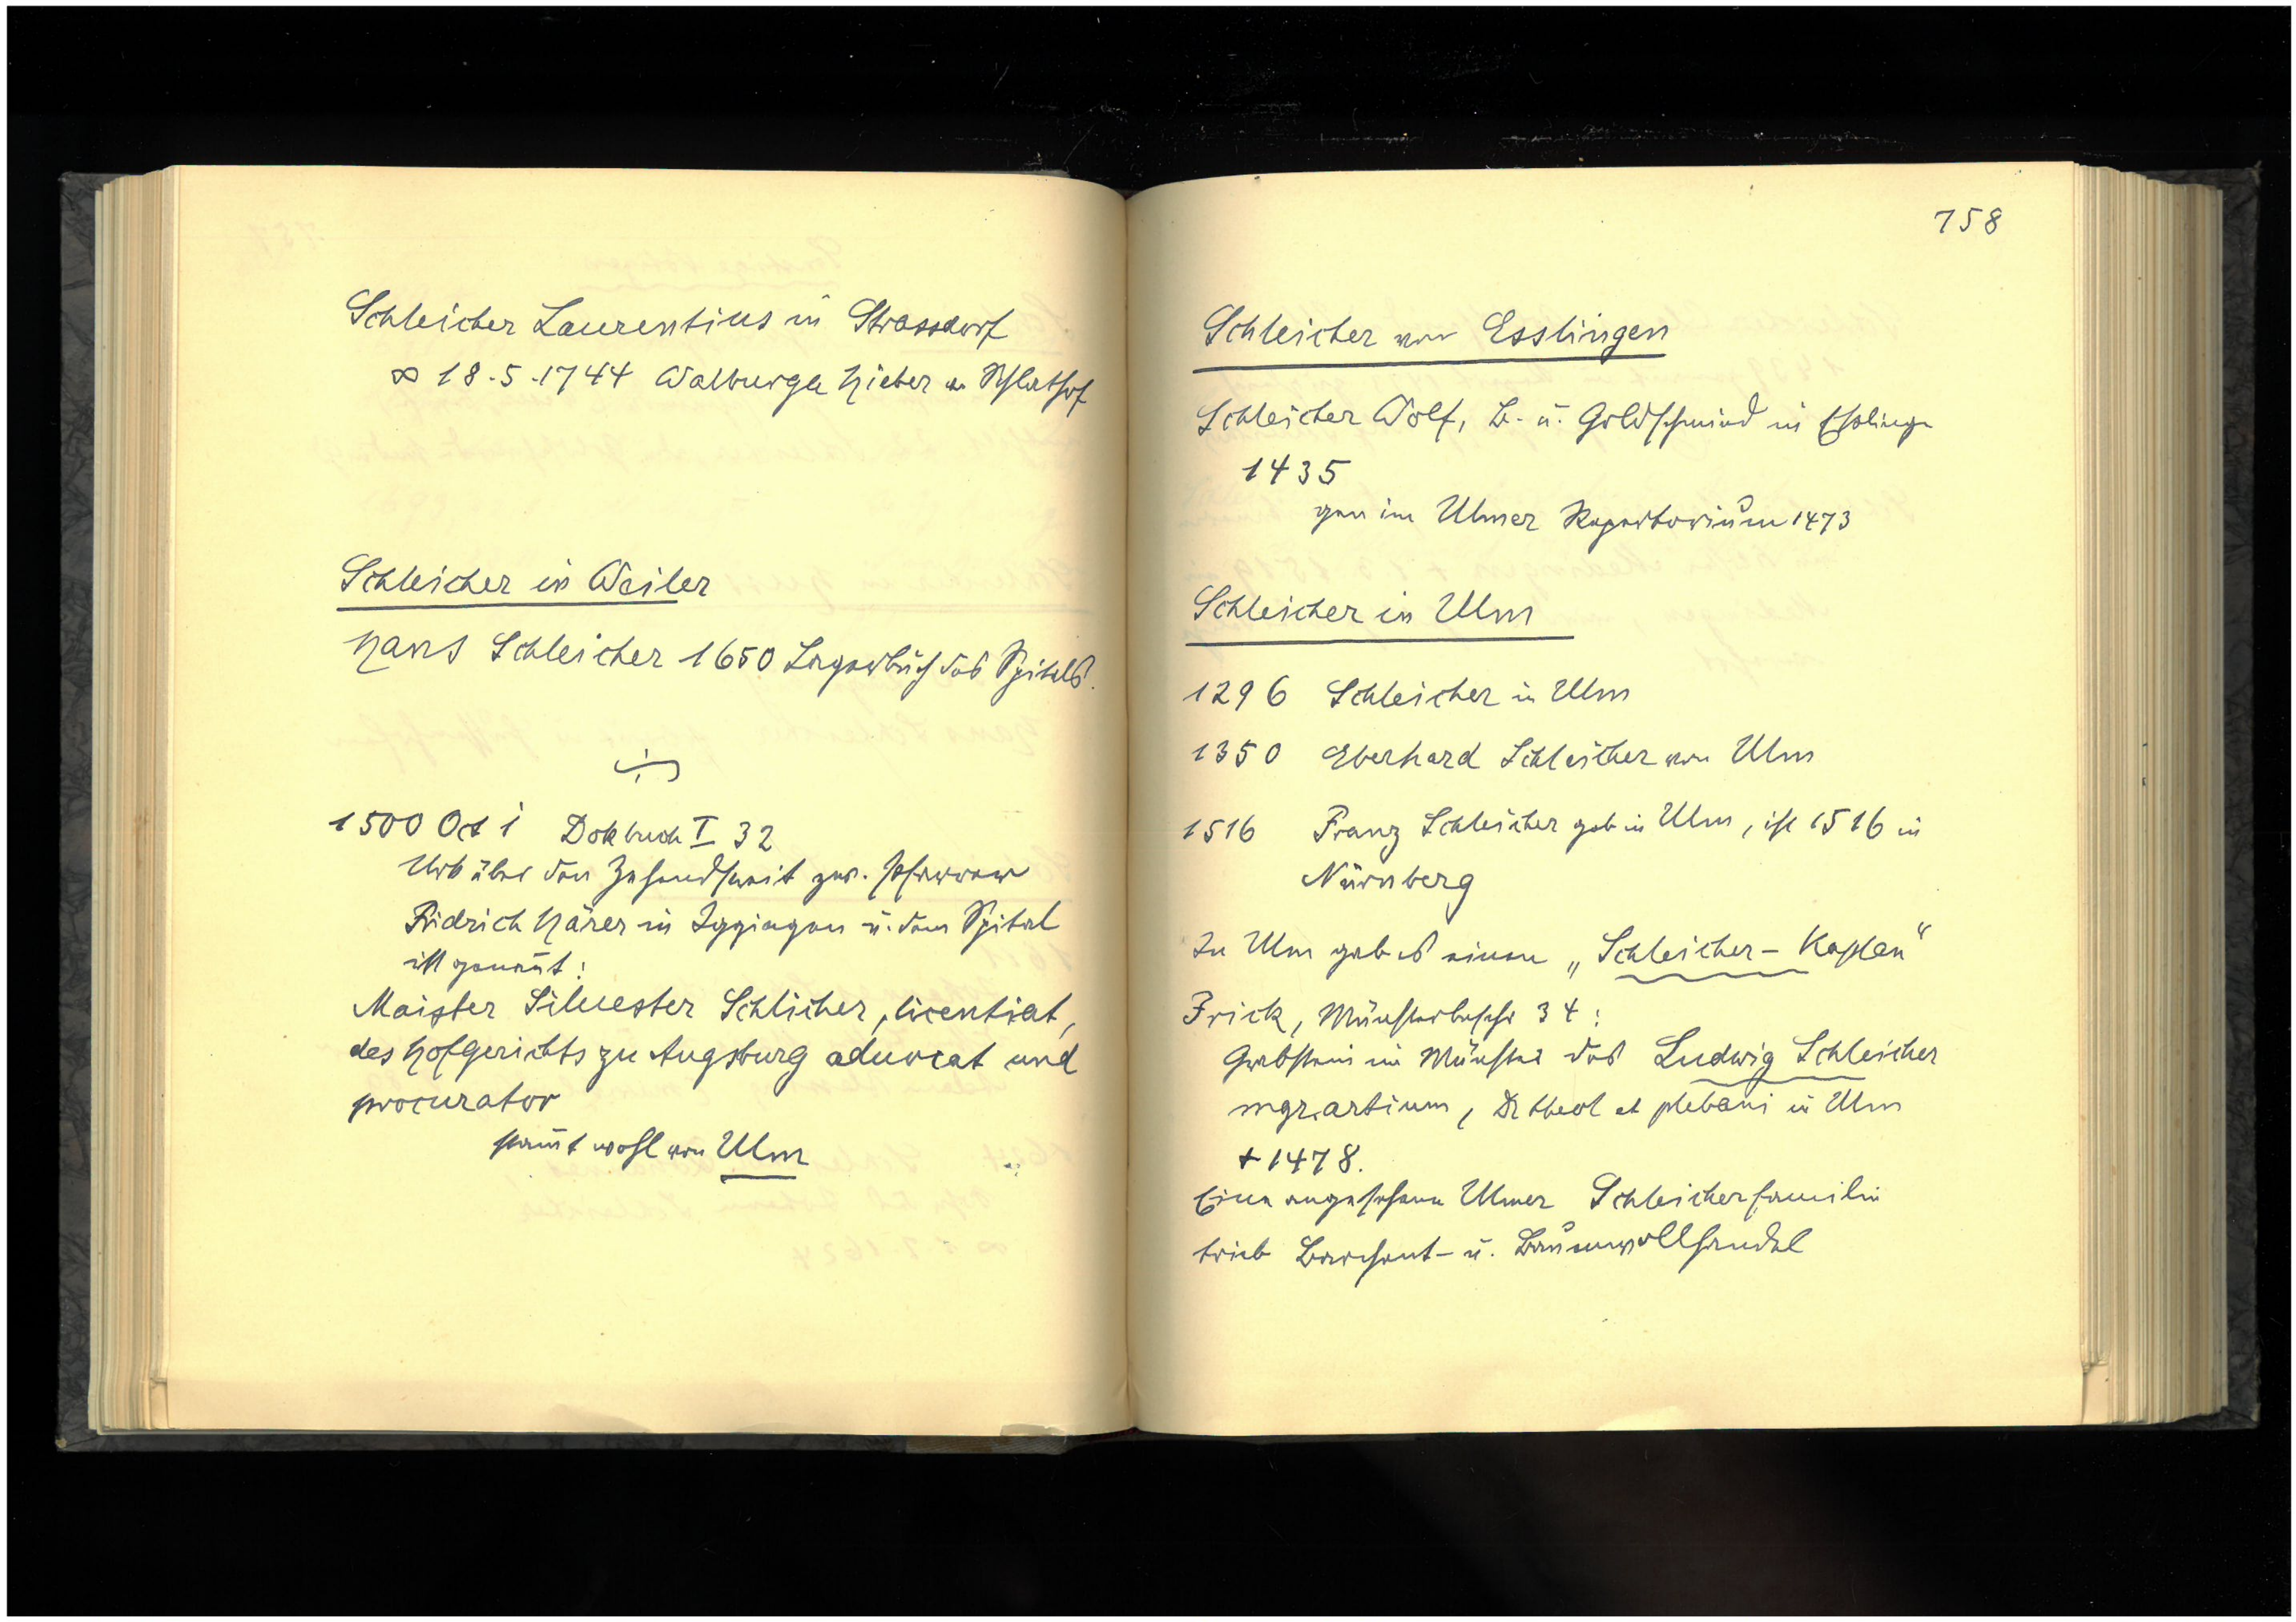 Schleicher Laurentius in Strassdorf
∞ 18.5.1744 Walburga Hieber v. Schlathof
Schleicher in Weiler
Hans Schleicher 1650 Lagerbuch des Spitals.
1500 Oct 1 Dokbuch I 32
Urk über den Zehendstreit zw. Pfarrer
Fridrich Härer in Iggingen u. dem Spital
ist genañt:
Maister Silvester Schlicher, licentiat,
des Hofgerichts zu Augsburg aduocat und
procurator
stam̄t wohl von Ulm
758
Schleicher von Esslingen
Schleicher Wolf, B. u. Goldschmied in Esslingen
1435
gen im Ulmer Repertorium 1473
Schleicher in Ulm
1296 Schleicher in Ulm
1350 Eberhard Schleicher von Ulm
1516 Franz Schleicher geb in Ulm, ist 1516 in
Nürnberg
In Ulm gab es einen „Schleicher-Kaplan"
Frick, Münsterbeschr 34:
Grabstein im Münster des Ludwig Schleicher
mgr. artium, Dr theol et plebani in Ulm
+ 1478.
Eine angesehene Ulmer Schleicherfamilie
trieb Barchent- u. Baumwollhandel